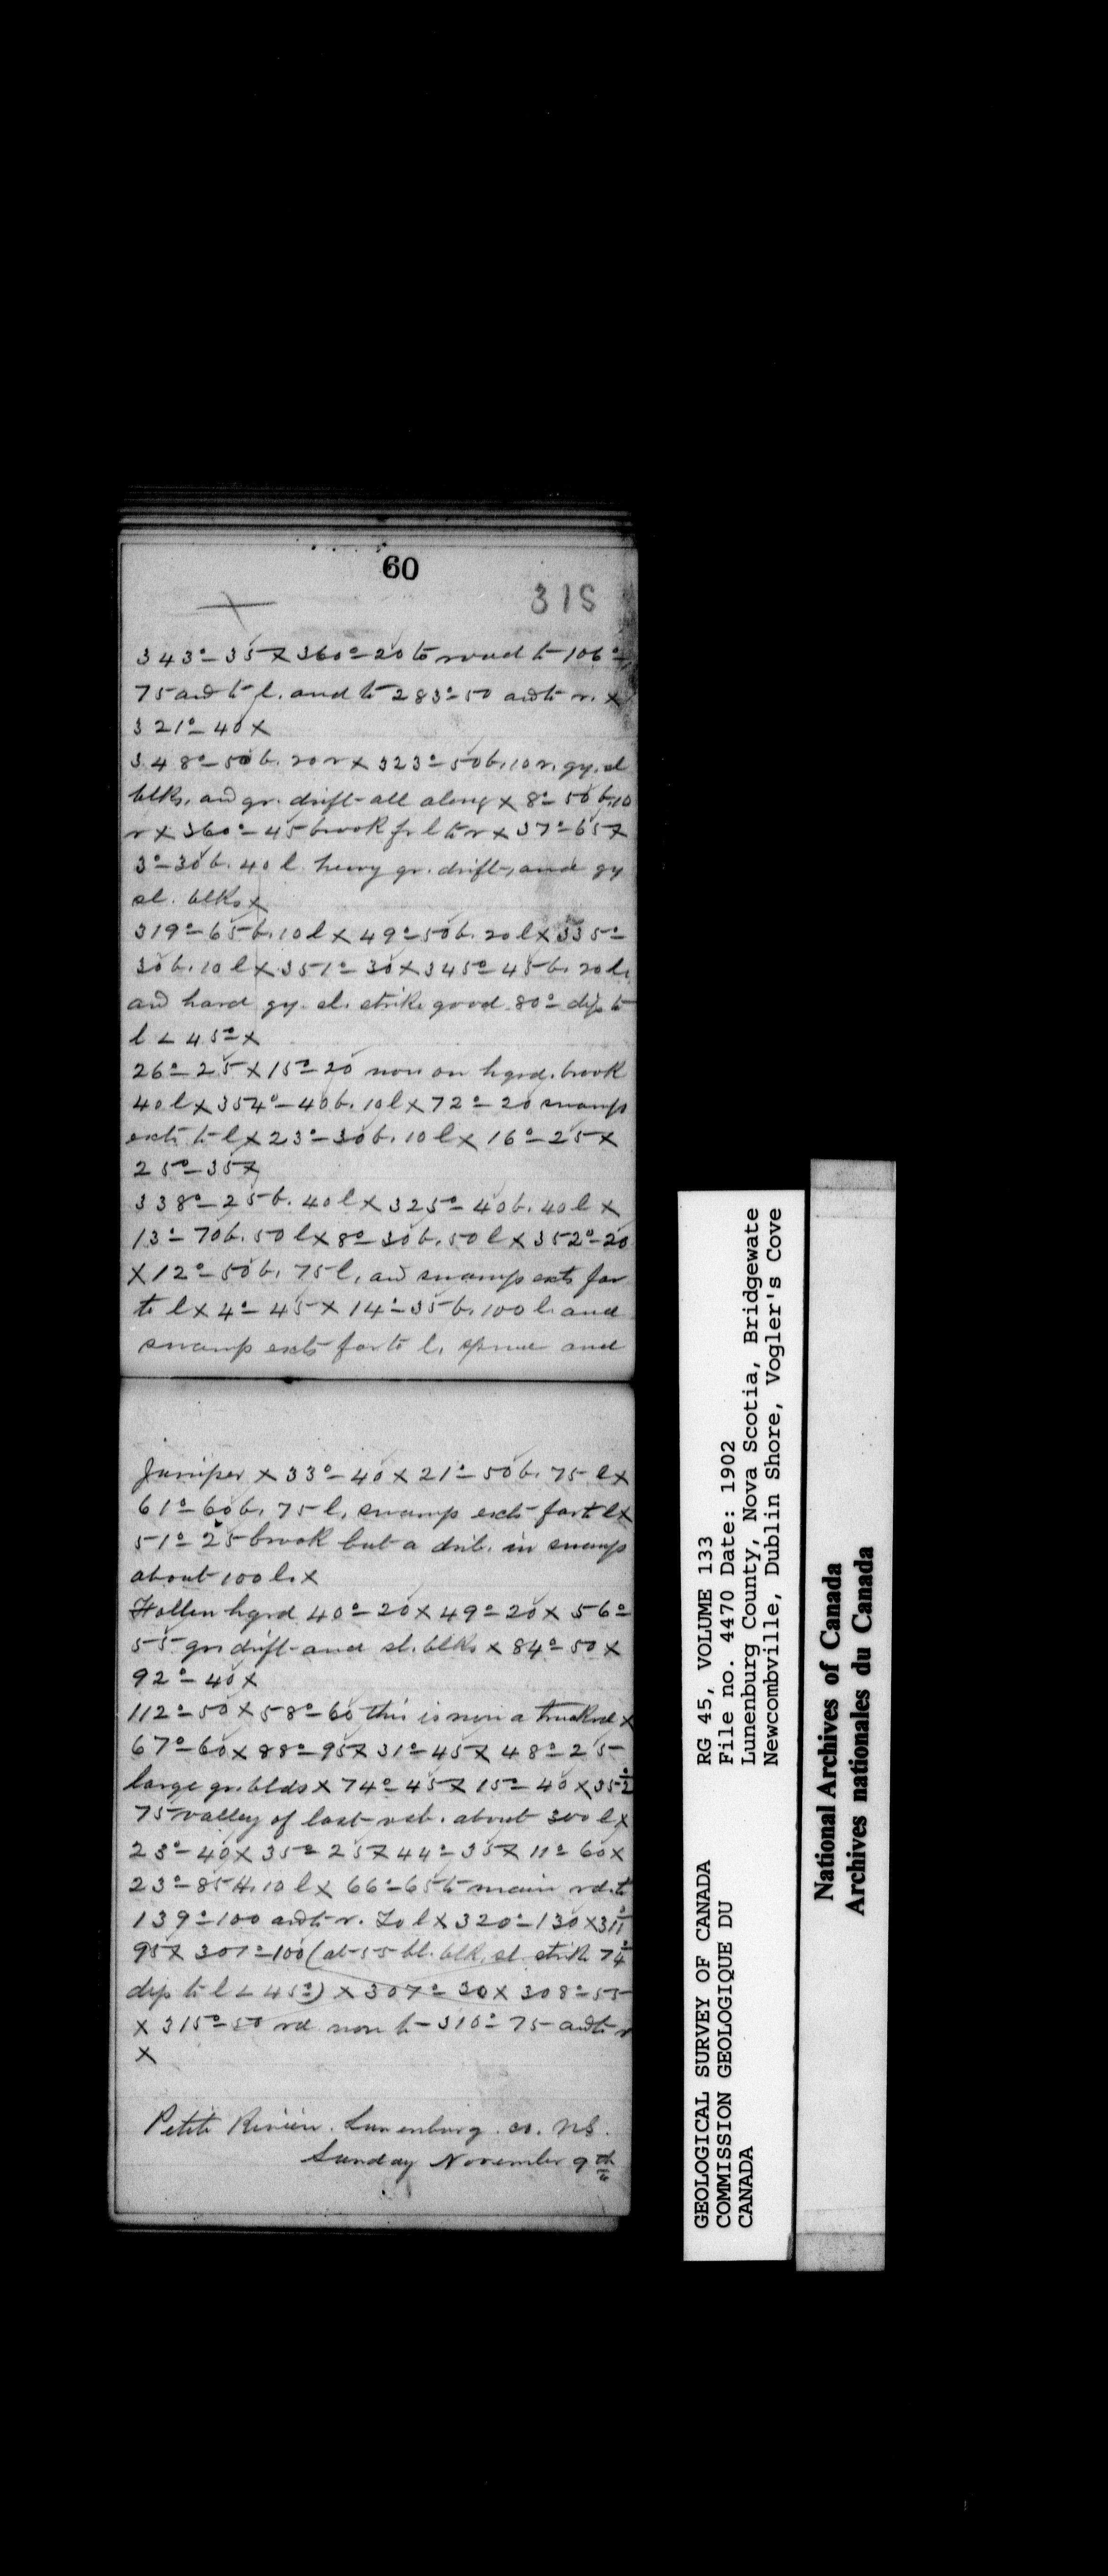 60
315
343°-35 x 360°-20 to road to 106°-
75 and to l. and to 283°-50 and to r. x
321°-40 x
348°-50 b. 20 r x 323°-50 b. 10 r. gy. sl
blks. and gr. drift all along x 8°-50 b. 10
r x 360°-45 brook fr l to r x 37°-65 x
3°-30 b. 40 l. heavy gr. drift, and gy
sl. blks x
319°-65 b. 10 l x 49°-50 b. 20 l x 335°-
30 b. 10 l x 351°-30 x 345°-45 b. 20 l.
and hard gy. sl. strike good 80° dip to
l ∠ 45° x
26°-25 x 15°-20 now on hgrd. brook
40 l x 354°-40 b. 10 l x 72°-20 swamp
exts to l x 23°-30 b. 10 l x 16°-25 x
25°-35 x
338°-25 b. 40 l x 325°-40 b. 40 l x
13°-70 b. 50 l x 8°-30 b. 50 l x 352°-20
x 12°-50 b. 75 l, and swamp exts far
to l x 4°-45 x 14°-35 b. 100 l. and
swamp exts far to l. spruce and
Juniper x 33°-40 x 21°-50 b. 75 l x
61°-60 b. 75 l, swamp exts far to l x
51°-25 brook but a drib. in swamp
about 100 l. x
Follen hgrd 40°-20 x 49°-20 x 56°-
55 gr. drift and sl. blks x 84°-50 x
92°-40 x
112°-50 x 58°-60 this is now a truckrd x
67°-60 x 88°-95 x 31°-45 x 48°-25
large gr. blds x 74°-45 x 15°-40 x 352°
75 valley of last about 300 l x
23°-40 x 35°-25 x 44°-35 x 11°-60 x
23°-85 H. 10 l x 66°-65 to main rd. to
139°-100 and to r. To l x 320°-130 x 311°
95 x 307°-100 (at 55 bl. blk. sl. strike 74°
dip to l ∠ 45°) x 307°-30 x 308°-55
x 315°-50 rd. now to 310°-75 and to r
x
Petite Riviere. Lunenburg. co. N.S.
Sunday November 9th
GEOLOGICAL SURVEY OF CANADA
COMMISSION GEOLOGIQUE DU
CANADA
RG 45, VOLUME 133
File no. 4470 Date: 1902
Lunenburg County, Nova Scotia, Bridgewate
Newcombville, Dublin Shore, Vogler's Cove
National Archives of Canada
Archives nationales du Canada